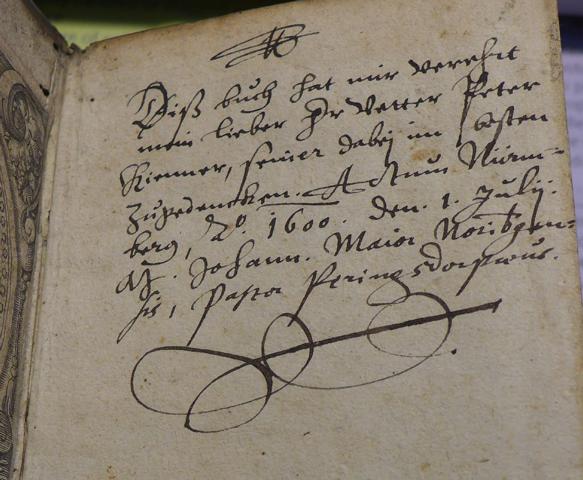 Diß buch hat mir verehrt
mein lieber Hr Vetter Peter
Kiemner, seiner dabej im besten
Zugedencken. Actum Nürm=
berg, Aº. 1600. den. 1. Julij.
M. Johann. Maior Noribgen=
sis, Pastor Peringsdorpianus.